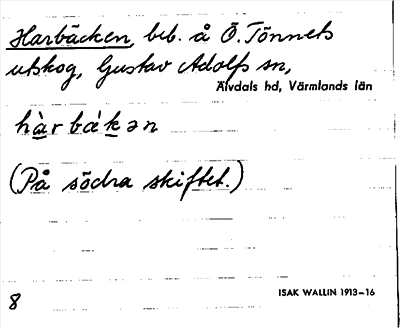 Harbäcken, beb. å Ö. Tönnets
utskog, Gustav Adolfs sn,
Älvdals hd, Värmlands län
hàrbákən
(På södra skiftet.)
8
ISAK WALLIN 1913–16